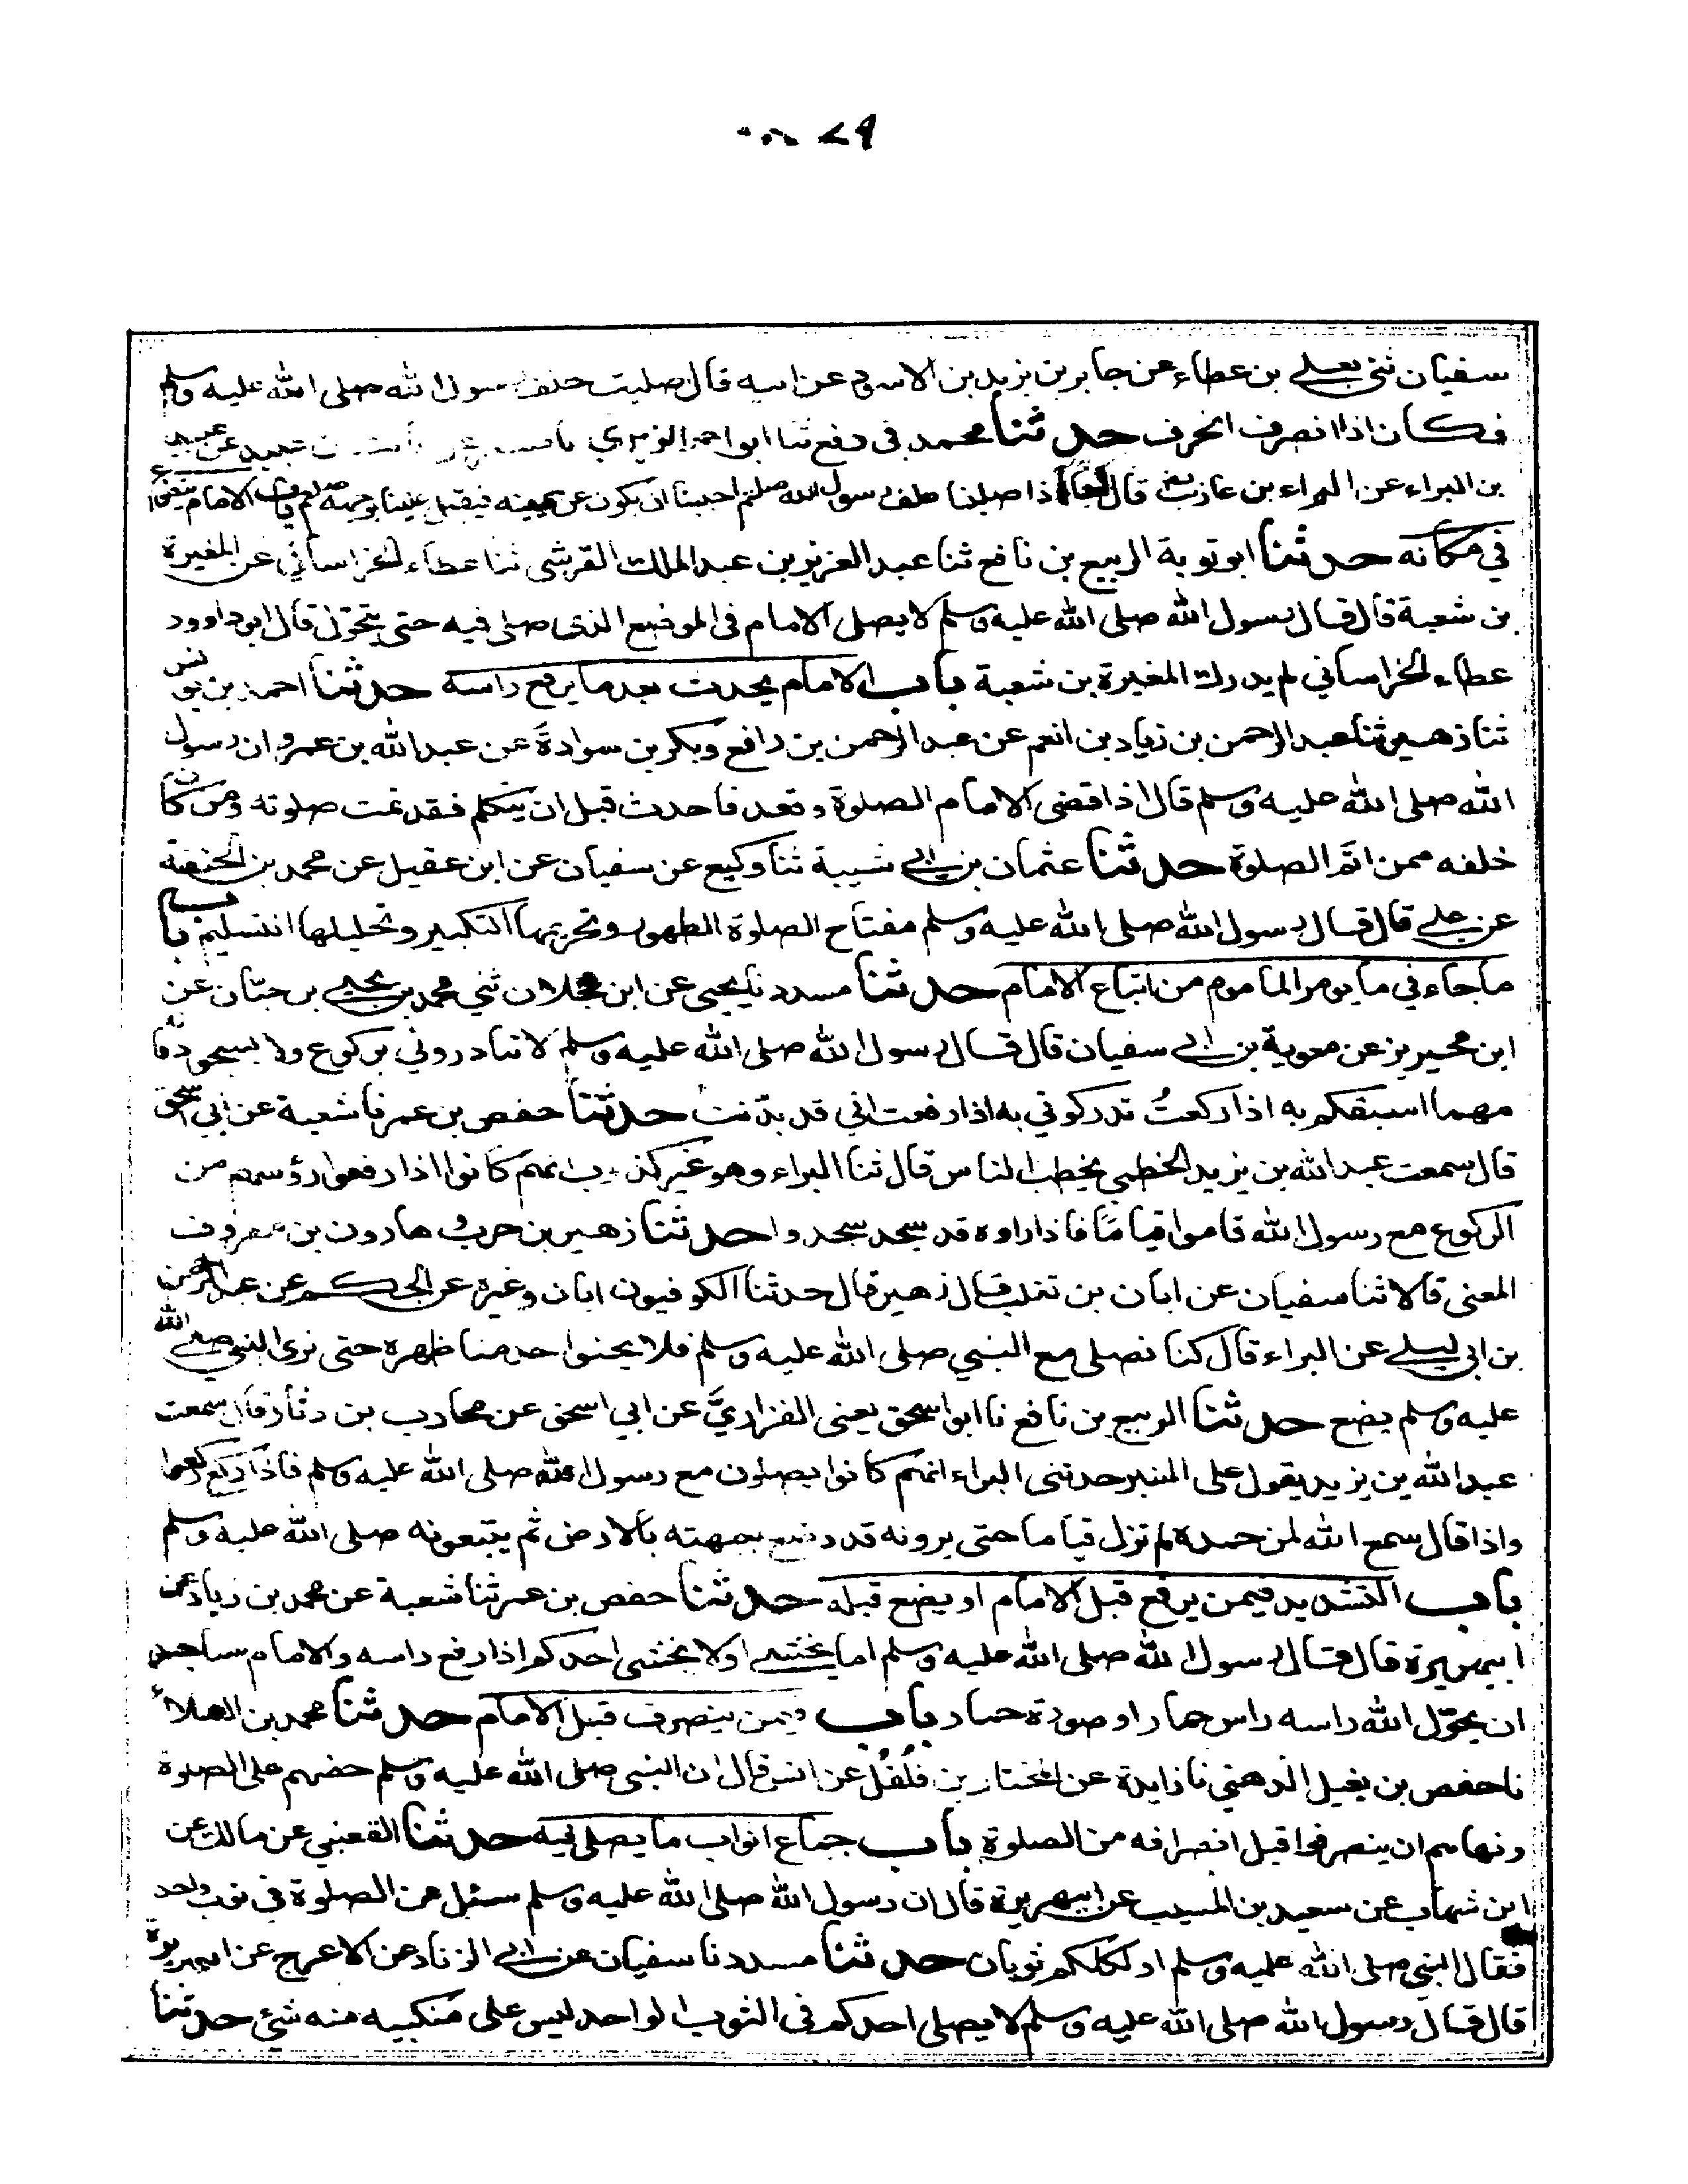 سفيان ثني يعلى بن عطاء عن جابر بن يزيد بن الاسود عن ابيه قال صليت خلف رسول الله صلى الله عليه وسلم
فكان اذا انصرف انحرف حدثنا محمد بن رافع ثنا ابو احمد الزبيري عن عبيد
بن البراء عن البراء بن عازب قال كنا اذا صلينا خلف رسول الله صلعم احببنا ان نكون عن يمينه فيقبل علينا بوجهه صلعم باب الامام يتطوع
في مكانه حدثنا ابو توبة الربيع بن نافع ثنا عبد العزيز بن عبد الملك القرشي ثنا عطاء الخراساني عن المغيرة
بن شعبة قال قال رسول الله صلى الله عليه وسلم لا يصلي الامام في الموضع الذي صلى فيه حتى يتحوّل قال ابو داوود
عطاء الخراساني لم يدرك المغيرة بن شعبة باب الامام يحدث بعد ما يرفع راسه حدثنا احمد بن يونس
ثنا زهير ثنا عبد الرحمن بن زياد بن انعم عن عبد الرحمن بن رافع وبكر بن سوادةَ عن عبد الله بن عمرو ان رسول
الله صلى الله عليه وسلم قال اذا قضى الامام الصلوة وقعد فاحدث قبل ان يتكلم فقد تمت صلوته ومن كان
خلفه ممن اتمّ الصلوة حدثنا عثمان بن ابي شيبة ثنا وكيع عن سفيان عن ابن عقيل عن محمد بن الحنفية
عن علي قال قال رسول الله صلى الله عليه وسلم مفتاح الصلوة الطهور وتحريمها التكبير وتحليلها التسليم باب
ما جاء في ما يومر الماموم من اتباع الامام حدثنا مسدد نا يحيى عن ابن عجلان ثني محمد بن يحيى بن حبّان عن
ابن محيريز عن معوية بن ابي سفيان قال قال رسول الله صلى الله عليه وسلم لا تبادروني بركوع ولا بسجود فانه
مهما اسبقكم به اذا ركعتُ تدركوني به اذا رفعت اني قد بدّنت حدثنا حفص بن عمر نا شعبة عن ابي اسحق
قال سمعت عبد الله بن يزيد الخطمي يخطب الناس قال ثنا البراء وهو غير كذوب انهم كانوا اذا رفعوا رؤسهم من
الركوع مع رسول الله قاموا قيامًا فاذا راوه قد سجد سجدوا حدثنا زهير بن حرب وهارون بن معروف
المعنى قالا ثنا سفيان عن ابان بن تغلب قال زهير قال حدثنا الكوفيون ابان وغيره عن الحكم عن عبد الرحمن
بن ابي ليلى عن البراء قال كنا نصلي مع النبي صلى الله عليه وسلم فلا يحنوا احد منا ظهره حتى نرى النبي صلى الله
عليه وسلم يضع حدثنا الربيع بن نافع نا ابو اسحق يعني الفزاريَّ عن ابي اسحق عن محارب بن دثار قال سمعت
عبد الله بن يزيد يقول على المنبر حدثني البراء انهم كانوا يصلون مع رسول الله صلى الله عليه وسلم فاذا ركع ركعوا
واذا قال سمع الله لمن حمده لم نزل قياما حتى يرونه قد وضع جبهته بالارض ثم يتبعونه صلى الله عليه وسلم
باب التشديد فيمن يرفع قبل الامام او يضع قبله حدثنا حفص بن عمر ثنا شعبة عن محمد بن زياد عن
ابيهريرة قال قال رسول الله صلى الله عليه وسلم اما يخشى او لا يخشى احدكم اذا رفع راسه والامام ساجد
ان يحوّل الله راسه راس حمار او صورة حمار باب فيمن ينصرف قبل الامام حدثنا محمد بن العلاء
نا حفص بن بغيل الدهني نا زايدة عن المختار بن فُلفُل عن انس قال ان النبي صلى الله عليه وسلم حضهم على الصلوة
ونهاهم ان ينصرفوا قبل انصرافه من الصلوة باب جماع اثواب ما يصلى فيه حدثنا القعنبي عن مالك عن
ابن شهاب عن سعيد بن المسيب عن ابيهريرة قال ان رسول الله صلى الله عليه وسلم سئل عن الصلوة في ثوب واحد
فقال النبي صلى الله عليه وسلم اولكلكم ثوبان حدثنا مسدد نا سفيان عن ابي الزناد عن الاعرج عن ابيهريرة
قال قال رسول الله صلى الله عليه وسلم لا يصلي احدكم في الثوب الواحد ليس على منكبيه منه شئ حدثنا